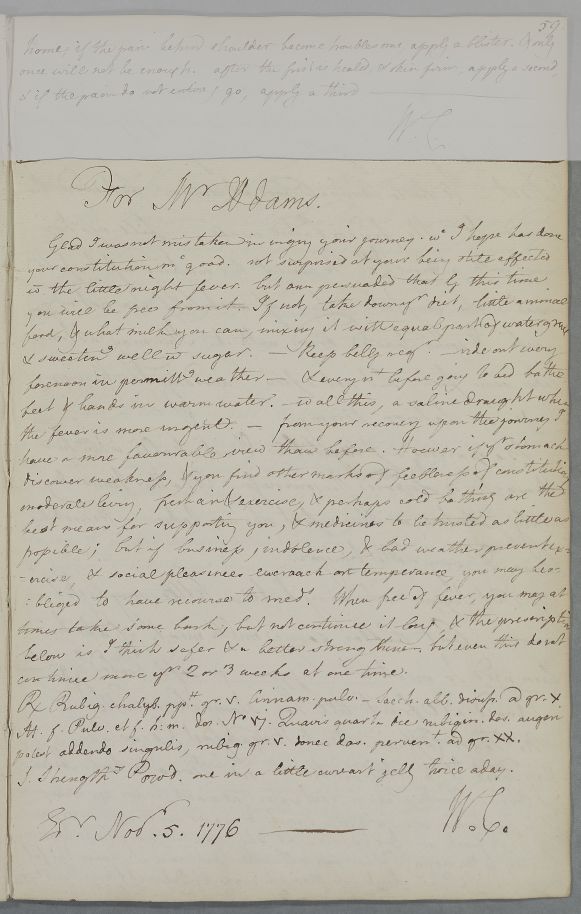 59
home; if the pain behind shoulder become troublesome apply a blister. & only
once will not be enough. after the first is healed & skin firm, apply a second
& if the pain do not entirely go, apply a third
W.C.
For Mr Adams.
Glad I was not mistaken in urging your journey. wc I hope has done
your constitution mc good. not surprised at your being still affected
w the little night fever. but am persuaded that by this time
you will be free from it. If not, take down yr diet, little animal
food, & what milk you can, mixing it with equal part of water gruel
& sweetend well w sugar. — Keep belly reg. — ride out every
forenoon in permittg weather — & every nt before going to bed bathe
feet & hands in warm water. — to all this, a saline draught when
the fever is more urgent. — from your recovery upon the journey I
have a more favourable view than before. However if yr stomach
discover weakness, & you find other marks of feebleness of constitution
moderate living, fresh air & exercise, & perhaps cold bathing are the
best means for supporting you, & medicines to be trusted as little as
possible; but if business, indolence, & bad weather prevent ex=
-ercise, & social pleasures encroach on temperance, you may be o-
:bliged to have recourse to meds. When free of fever, you may at
times take some bark, but not continue it long, & the prescription
below is I think safer & a better strengthener, but even this do not
continue more yn 2 or 3 weeks at one time.
Rx Rubig. chalyb. ppt. gr. v. Cinnam. pulv. — sacch. alb. 
 ad gr. x
M. f. Pulv. et f. h. m. dos. No vj. Quavis quarta die rubigin. dos. augeri
potest addendo singulis, rubig. gr. v. donec dos. pervent. ad gr. xx.
S. Strengthg Powd. one in a little currant jelly twice a day.
Edr. Novr. 5. 1776
W.C.